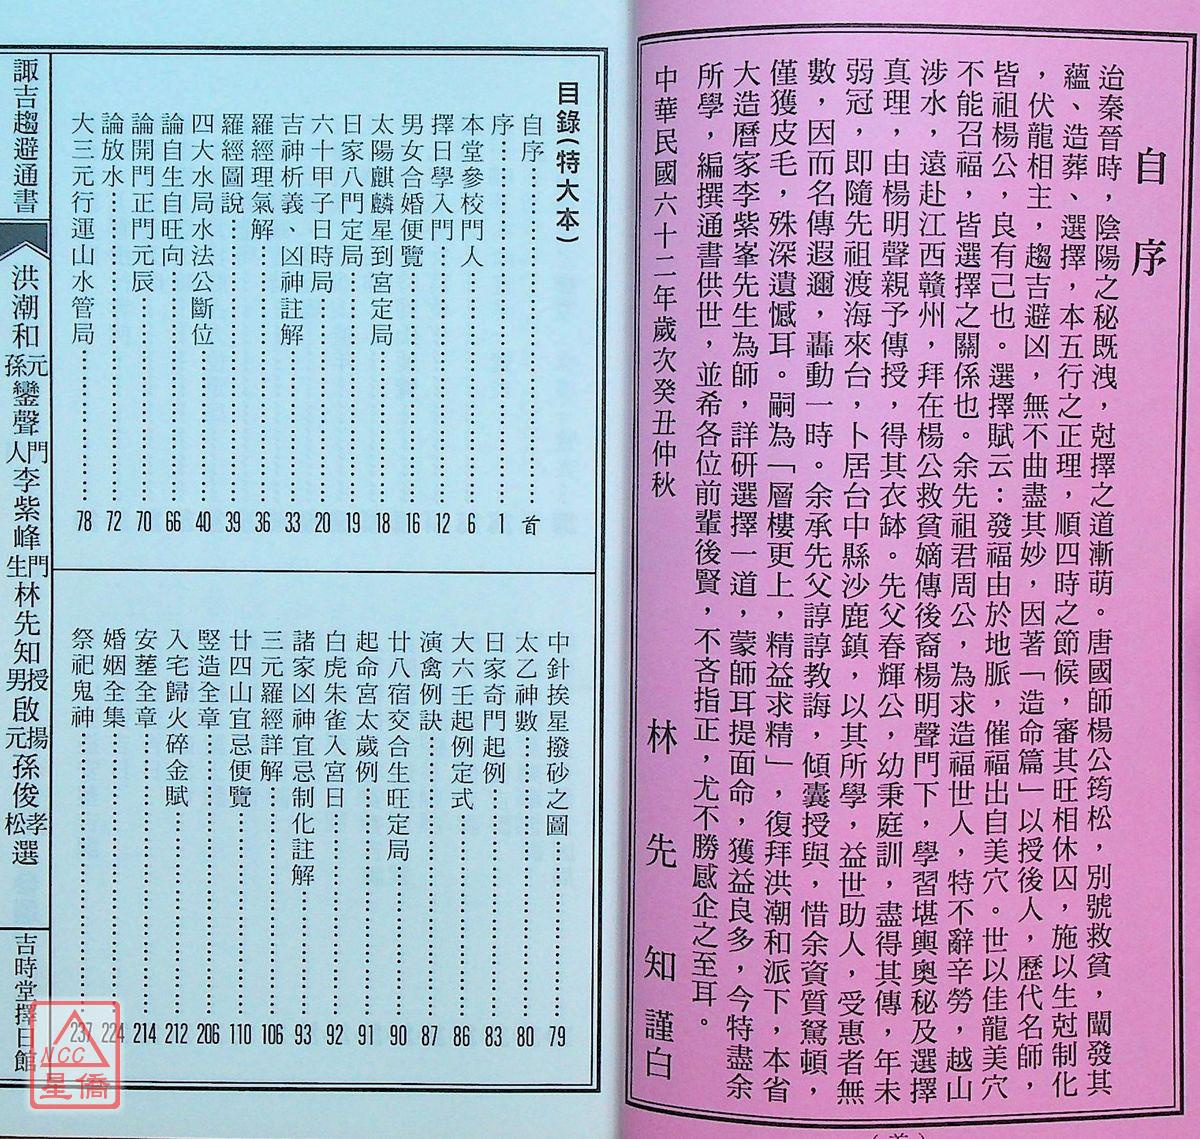 自序
迨秦晉時，陰陽之秘既洩，尅擇之道漸萌。唐國師楊公筠松，別號救貧，闡發其
蘊、造葬、選擇，本五行之正理，順四時之節候，審其旺相休囚，施以生尅制化
，伏龍相主，趨吉避凶，無不曲盡其妙，因著「造命篇」以授後人，歷代名師，
皆祖楊公，良有己也。選擇賦云：發福由於地脈，催福出自美穴。世以佳龍美穴
不能召福，皆選擇之關係也。余先祖君周公，為求造福世人，特不辭辛勞，越山
涉水，遠赴江西贛州，拜在楊公救貧嫡傳後裔楊明聲門下，學習堪輿奧秘及選擇
真理，由楊明聲親予傳授，得其衣缽。先父春輝公，幼秉庭訓，盡得其傳，年未
弱冠，即隨先祖渡海來台，卜居台中縣沙鹿鎮，以其所學，益世助人，受惠者無
數，因而名傳遐邇，轟動一時。余承先父諄諄教誨，傾囊授與，惜余資質駑頓，
僅獲皮毛，殊深遺憾耳。嗣為「層樓更上，精益求精」，復拜洪潮和派下，本省
大造曆家李紫峯先生為師，詳研選擇一道，蒙師耳提面命，獲益良多，今特盡余
所學，編撰通書供世，並希各位前輩後賢，不吝指正，尤不勝感企之至耳。
中華民國六十二年歲次癸丑仲秋
林先知謹白
目錄(特大本)
自序……首
序……1
本堂參校門人……6
擇日學入門……12
男女合婚便覽……16
太陽麒麟星到宮定局……18
日家八門定局……19
六十甲子日時局……20
吉神析義、凶神註解……33
羅經理氣解……36
羅經圖說……39
四大水局水法公斷位……40
論自生自旺向……66
論開門正門元辰……70
論放水……72
大三元行運山水管局……78
中針挨星撥砂之圖……79
太乙神數……80
日家奇門起例……83
大六壬起例定式……86
演禽例訣……87
廿八宿交合生旺定局……90
起命宮太歲例……91
白虎朱雀入宮日……92
諸家凶神宜忌制化註解……93
三元羅經詳解……106
廿四山宜忌便覽……110
竪造全章……206
入宅歸火碎金賦……212
安葬全章……214
婚姻全集……224
祭祀鬼神……237
諏吉趨避通書
洪潮和元孫鑾聲門人李紫峰門生林先知授男啟元揚孫俊松孝選
吉時堂擇日館
NCC
星僑